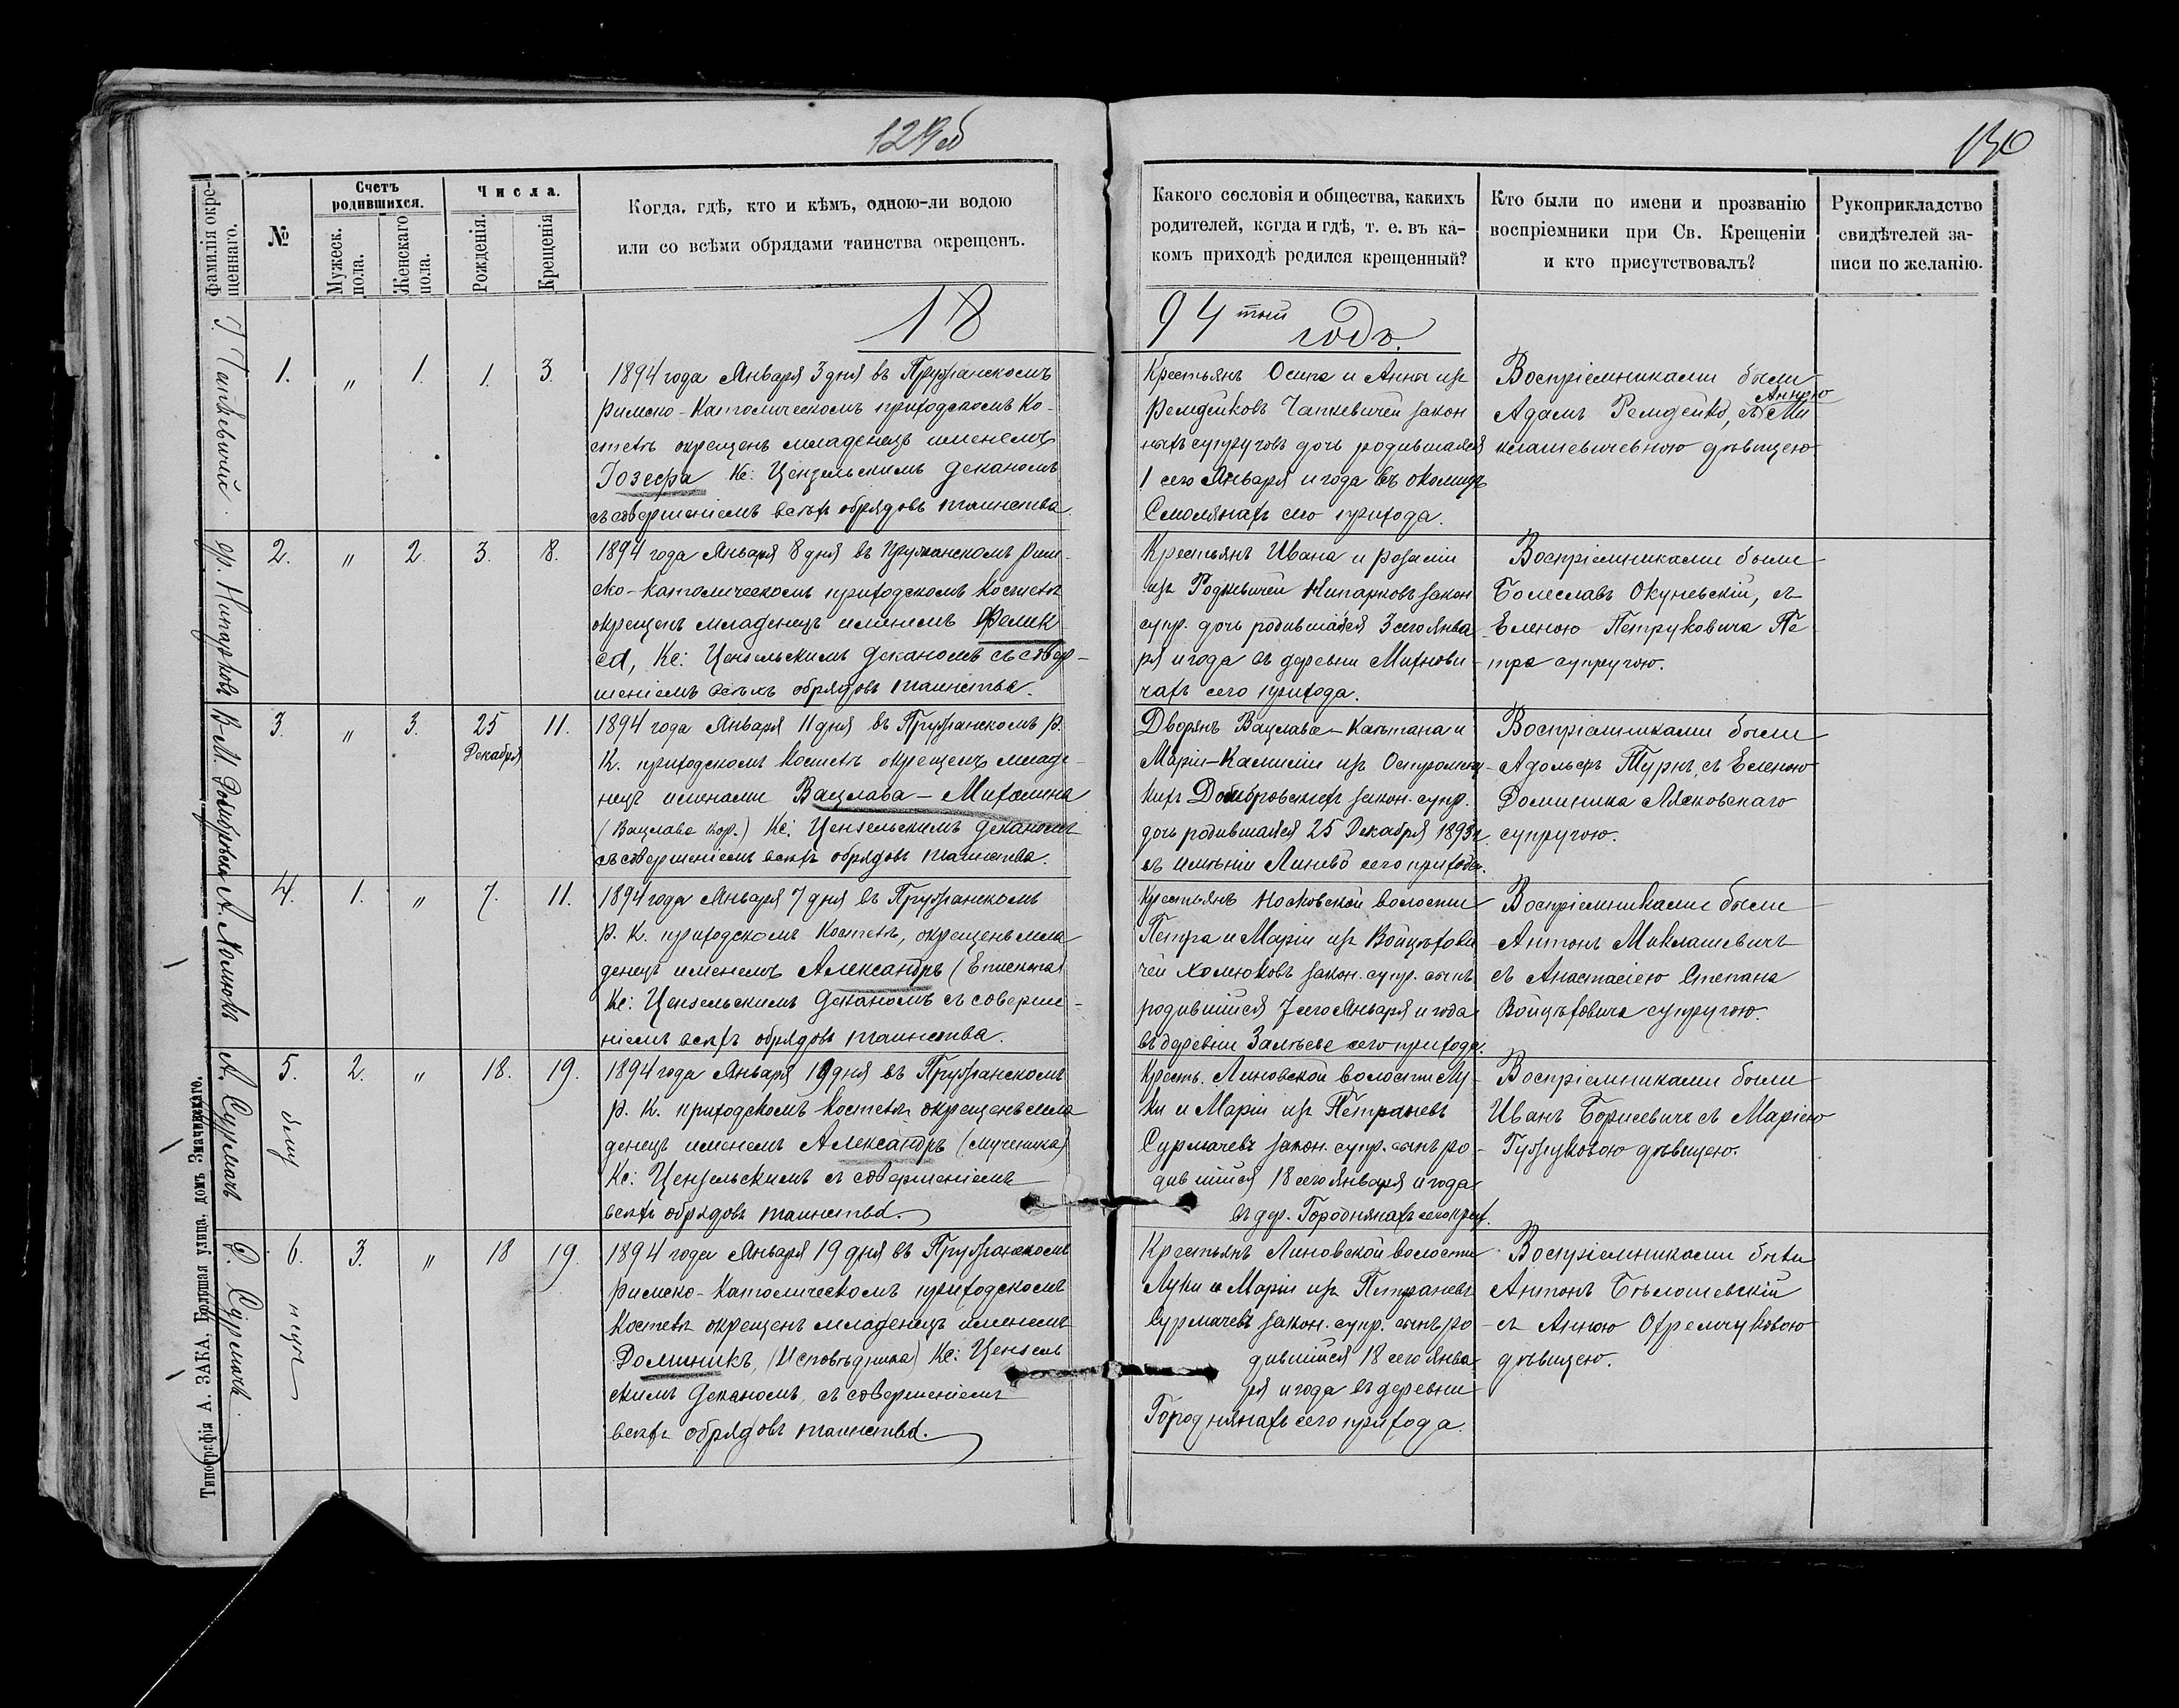 129 об
130
Фамилія окрещеннаго.
№
Счетъ родившихся.
Мужеск. пола.
Женскаго пола.
Числа.
Рожденія.
Крещенія
Когда, гдѣ, кто и кѣмъ, одною-ли водою
или со всѣми обрядами таинства окрещенъ.
Какого сословія и общества, какихъ
родителей, когда и гдѣ, т. е. въ ка-
комъ приходѣ родился крещенный?
Кто были по имени и прозванію
воспріемники при Св. Крещеніи
и кто присутствовалъ?
Рукоприкладство
свидѣтелей за-
писи по желанію.
18 94 тый годъ.
I. Чапкевичей
1. " 1. 1. 3.
1894 года Января 3 дня въ Пружанскомъ
Римско-Католическомъ приходскомъ Ко-
стелѣ окрещенъ младенецъ именемъ
Іозефа Кс: Цензельскимъ Деканомъ
съ совершеніемъ всѣхъ обрядовъ таинства.
Крестьянъ Осипа и Анны изъ
Ремдейковъ Чапкевичей закон
ныхъ супруговъ дочь родившаяся
1 сего Января и года въ околицѣ
Смолянахъ сего прихода.
Воспріемниками были
Адамъ Ремдейко, съ Анною Ми
клашевичевною дѣвицею
Нипарковъ
2. " 2. 3. 8.
1894 года Января 8 дня въ Пружанскомъ Рим-
ско-Католическомъ приходскомъ Костелѣ
окрещенъ младенецъ именемъ Фелик
са, Кс: Цензельскимъ Деканомъ съ совер-
шеніемъ всѣхъ обрядовъ таинства.
Крестьянъ Ивана и Розаліи
изъ Родкевичей Нипарковъ закон
супр. дочь родившаяся 3 сего Янва
ря и года въ деревни Михнови-
чахъ сего прихода.
Воспріемниками были
Болеславъ Окуневскій, съ
Еленою Петруковича Пе-
тра супругою.
В-М. Домбровска
3. " 3. 25 Декабря 11.
1894 года Января 11 дня въ Пружанскомъ Р.
К. приходскомъ Костелѣ окрещенъ младе-
нецъ именами Вацлава-Михалина
(Вацлава Кор.) Кс: Цензельскимъ Деканомъ
съ совершеніемъ всѣхъ обрядовъ таинства.
Дворянъ Вацлава-Каэтана и
Маріи-Камиліи изъ Остромец-
кихъ Домбровскихъ закон. супр.
дочь родившаяся 25 Декабря 1893 г.
въ имѣніи Линево сего прихода.
Воспріемниками были
Адольфъ Турнъ, съ Еленою
Доминика Лясковскаго
супругою.
А. Холюкъ
4. 1. " 7. 11.
1894 года Января 7 дня въ Пружанскомъ
Р. К. приходскомъ Костелѣ, окрещенъ мла
денецъ именемъ Александръ (Епископа)
Кс: Цензельскимъ Деканомъ съ соверше-
ніемъ всѣхъ обрядовъ таинства.
Крестьянъ Носковской волости
Петра и Маріи изъ Войцѣхови
чей Холюковъ закон. супр. сынъ
родившійся 7 сего Января и года
въ деревни Залѣсье сего прихода.
Воспріемниками были
Антонъ Миклашевичъ
съ Анастасіею Степана
Войцѣховича супругою.
А. Сурмачъ
5. 2. " 18. 19.
1894 года Января 19 дня въ Пружанскомъ
Р. К. приходскомъ Костелѣ окрещенъ мла
денецъ именемъ Александръ (Мученика)
Кс: Цензельскимъ съ совершеніемъ
всѣхъ обрядовъ таинства.
Крестъ. Линовской волости Лу-
ки и Маріи изъ Петраневъ
Сурмачевъ закон. супр. сынъ ро-
дившійся 18 сего Января и года
въ дер. Городнянахъ сего прих.
Воспріемниками были
Иванъ Борисевичъ съ Маріею
Гузнуковою дѣвицею.
Д. Сурмачъ
6. 3. " 18 19.
1894 года Января 19 дня въ Пружанскомъ
Римско-Католическомъ приходскомъ
Костелѣ окрещенъ младенецъ именемъ
Доминикъ, (Исповѣдника) Кс: Цензель
скимъ Деканомъ, съ совершеніемъ
всѣхъ обрядовъ таинства.
Крестьянъ Линовской волости
Луки и Маріи изъ Петраневъ
Сурмачевъ закон. супр. сынъ ро-
дившійся 18 сего Янва-
ря и года въ деревни
Городнянахъ сего прихода.
Воспріемниками были
Антонъ Бѣлошевскій
съ Анною Охремчуковою
дѣвицею.
Типографія А. ЗАКА, Большая улица, домъ Значинскаго.